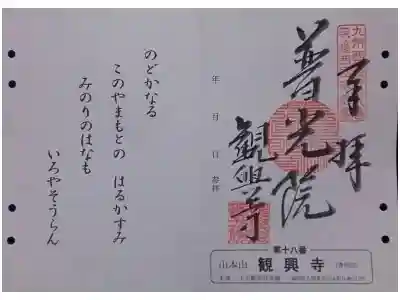 奉拝
普光院
観興寺
年 月 日 参拝
第十八番
山本山 観興寺
のどかなる
このやまもとの はるかすみ
みのりのはなも
いろやそうらん